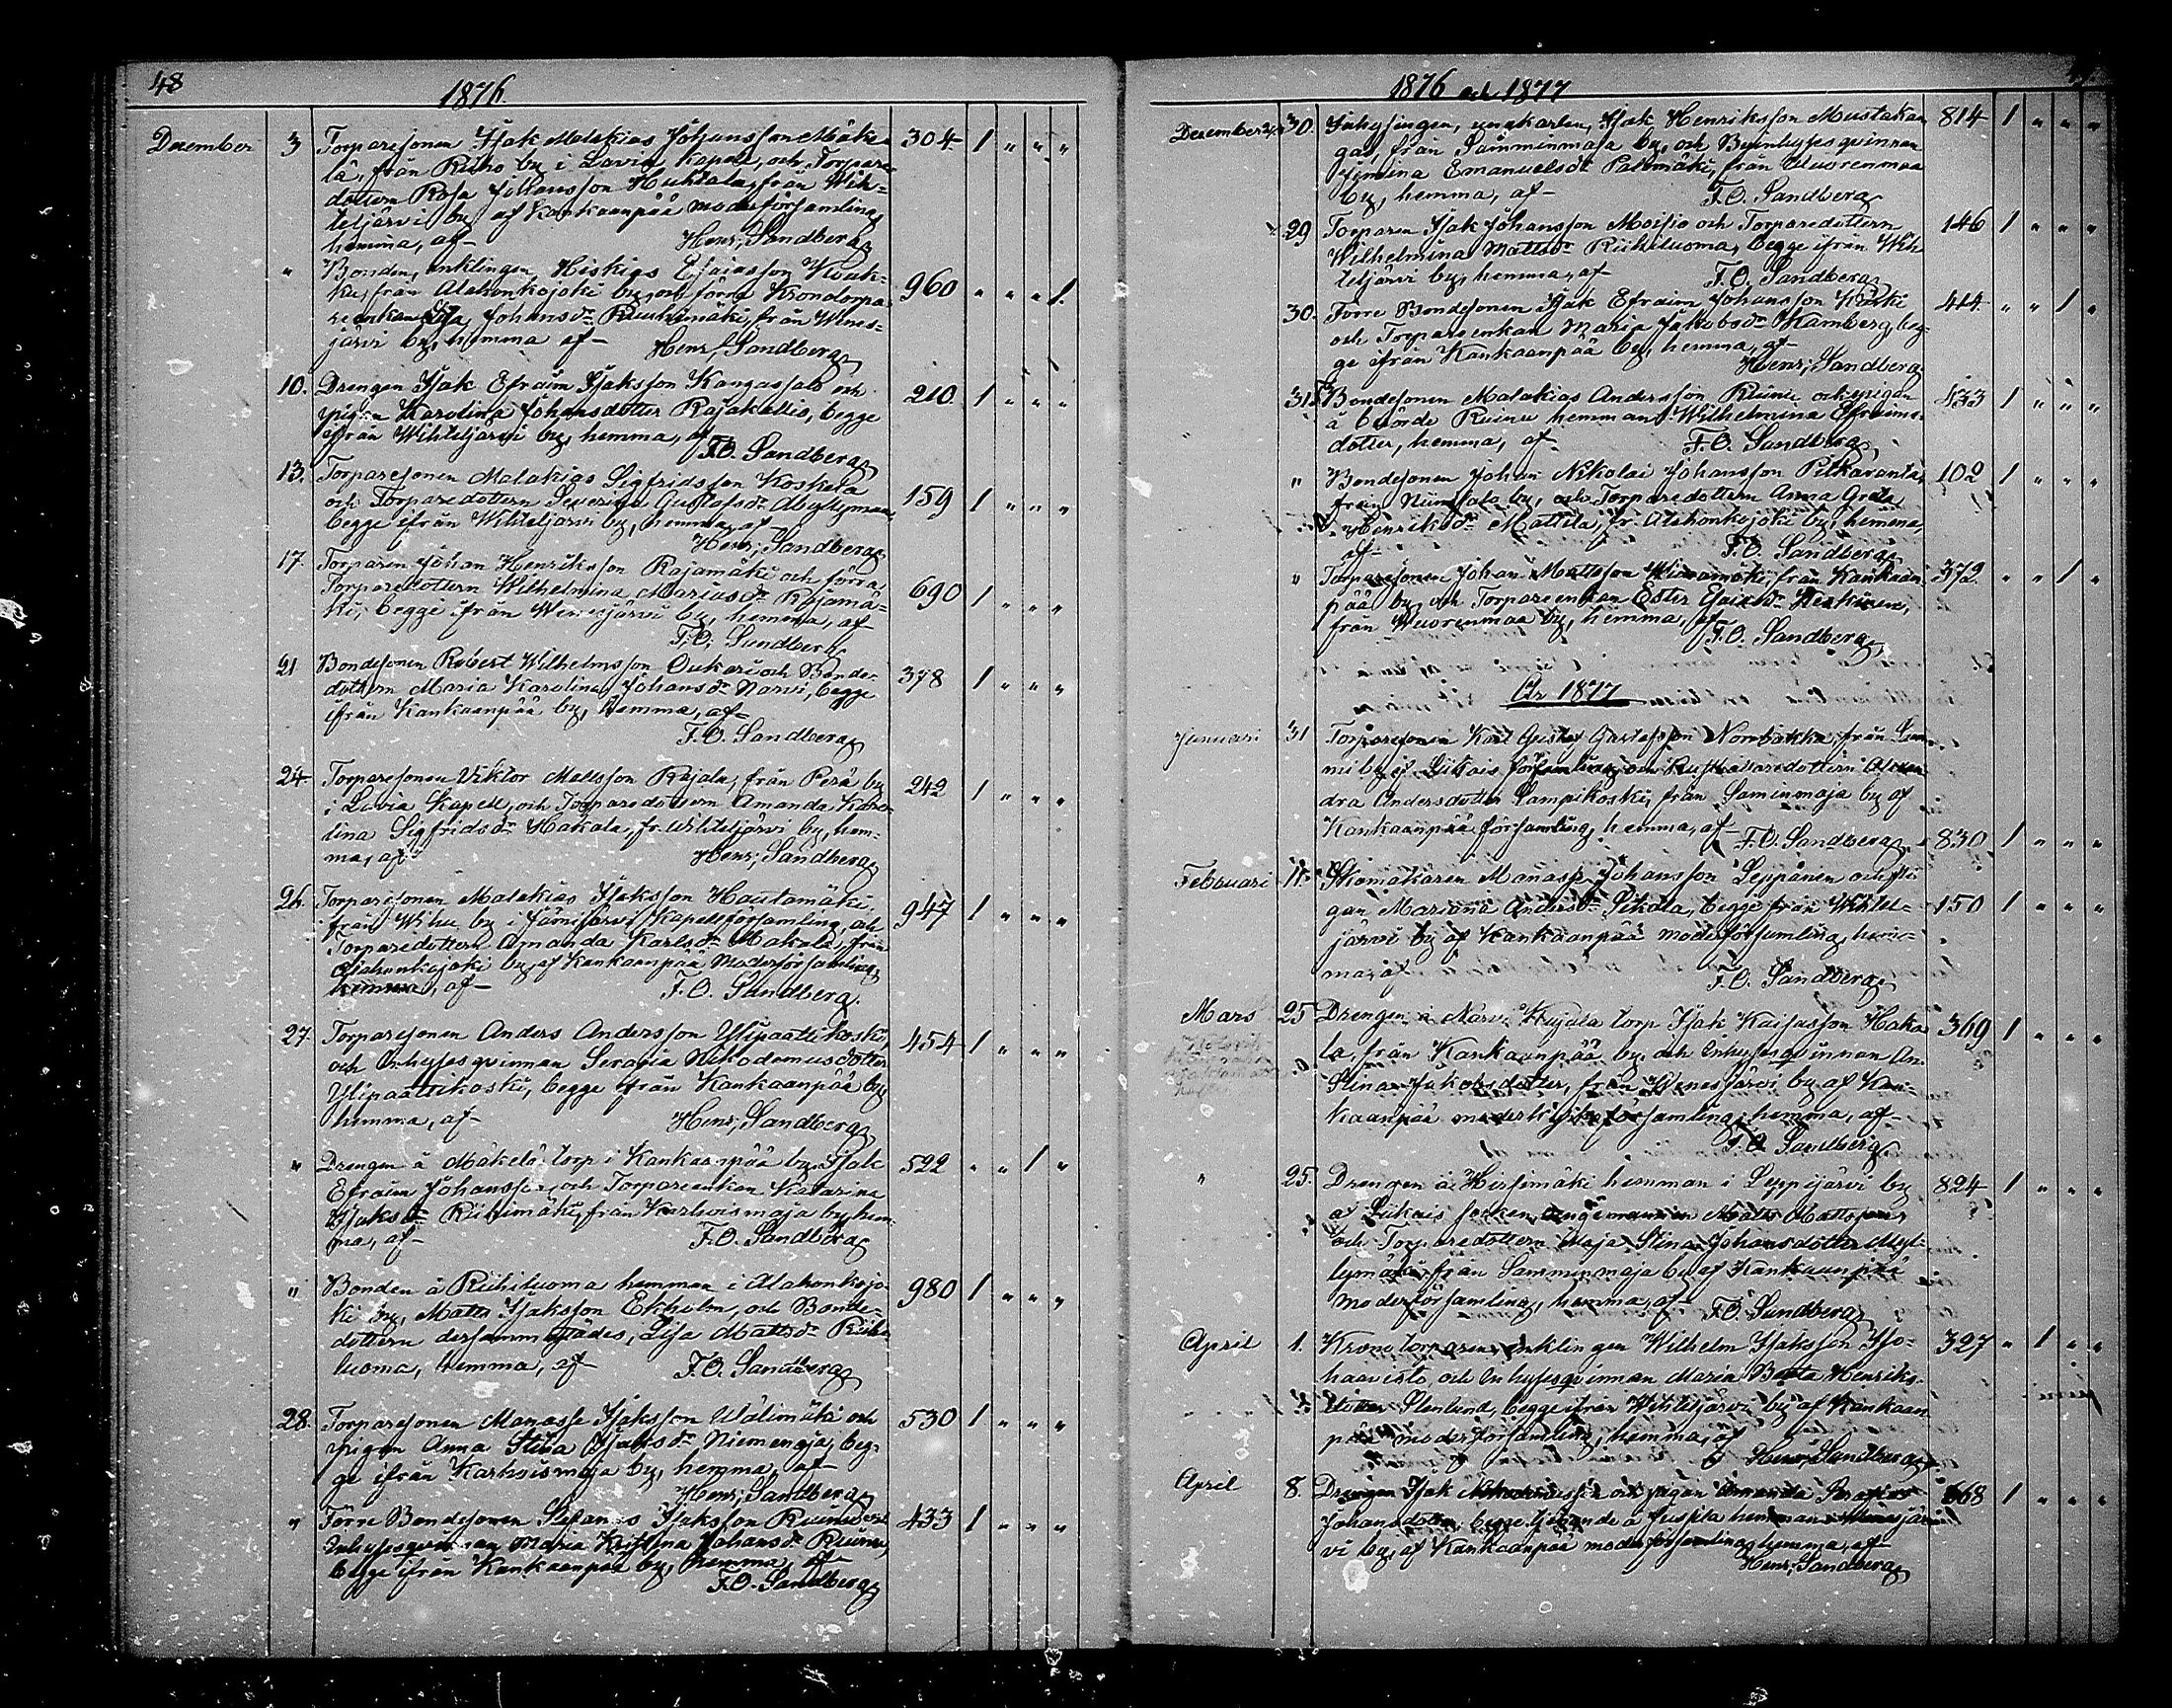 48
1876.
December 3 Torparesonen Isak Malakias Johansson Mäke- 304 1 " " "
lä, från Riiho by i Lavia kapell, och Torpare-
dottern Rosa Johansson Huhtala, från Wih-
teljärvi by af Kankaanpää moderförsamling
hemma, af— Henr; Sandberg
" Bonden, enklingen Hiskias Esaiasson Kouk- 960 " " " 1.
ku, från Alahonkojoki by, och förre Kronotorpa-
reenkan Lisa Johansdr Ruuhimäki, från Wenes-
järvi by, hemma af— Henr; Sandberg
10. Drengen Isak Efraim Isaksson Kangassalo och 210 1 " " "
pigan Karolina Johansdotter Rajakallio, begge
ifrån Wihteljärvi by, hemma, af
F.O. Sandberg
13. Torparesonen Malakias Sigfridsson Koskela
och Torparedottern Severina Gustafsdr Myllymaa, 159 1 " " "
begge ifrån Wihteljärvi by, hemma, af—
Henr; Sandberg
17. Torparen Johan Henriksson Rajamäki och förra
Torparedottern Wilhelmina Mariasdr Rajamä- 690 1 " " "
ki, begge ifrån Wenesjärvi by, hemma, af—
F.O. Sandberg
21 Bondesonen Robert Wilhelmsson Oukari och Bonde- 378 1 " " "
dottern Maria Karolina Johansdr Narvi, begge
ifrån Kankaanpää by, hemma, af—
F.O. Sandberg
24. Torparesonen Viktor Mattsson Rajala, från Perä by 242 1 " " "
i Lavia Kapell, och Torparedottern Amanda Karo-
lina Sigfridsdr Hakala, fr. Wihteljärvi by, hem-
ma, af Henr; Sandberg
26. Torparesonen Malakias Isaksson Hautamäki, 947 1 " " "
från Wihu by i Jämijärvi Kapellförsamling, och
Torparedottern Amanda Karlsdr Makola, från
Alahonkojoki by, af Kankaanpää Moderförsamling
hemma, af— F.O. Sandberg.
27. Torparesonen Anders Andersson Ylipaattikoski, 454 1 " " "
och Inhysesqvinnan Serafia Nikodemusdotter
Ylipaattikoski, begge ifrån Kankaanpää by,
hemma, af— Henr; Sandberg
" Drengen å Mäkelä torp i Kankaanpää by, Isak 522 " " 1 "
Efraim Johansson, och Torpareenkan Katarina
Isaksdr Riihimäki, från Karhoismaja by, hem-
ma, af— F.O. Sandberg
" Bonden å Riihiluoma hemman i Alahonkojo- 980 1 " " "
ki by, Matts Isaksson Ekholm, och Bonde-
dottern dersammastädes, Lisa Mattsdr Riihi-
luoma, hemma, af— F.O. Sandberg
28. Torparesonen Manasse Isaksson Wälimäki och 530 1 " " "
pigan Anna Stina Isaksdr Niemenoja, beg-
ge ifrån Karhoismaja by, hemma, af—
Henr; Sandberg
" Förre Bondesonen Stefanus Isaksson Ruunu och 433 1 " " "
Inhysesqvinnan Maria Kristina Johansdr Ruunu,
begge ifrån Kankaanpää by, hemma, af—
F.O. Sandberg
1876 och 1877
December 30. Inhysingen, ungkarlen, Isak Henriksson Mustakan 814 1 " " "
gas, från Sämminmaja by, och Inhysesqvinnan
Emanuelsdr Palomäki, från Wuorenmaa
by, hemma, af— F.O. Sandberg
29 Torparen Isak Johansson Moisio och Torparedottern 146 1 " " "
Wilhelmina Mattsdr Riihiluoma, begge ifrån Wih-
teljärvi by, hemma, af F.O. Sandberg
30. Förre Bondesonen Isak Efraim Johansson Koski 414 " " 1 "
och Torpareenkan Maria Jakobsdr Kamberg, beg-
ge ifrån Kankaanpää by, hemma, af—
Henr; Sandberg
31. Bondesonen Malakias Andersson Ruunu och pigan 433 1 " " "
å berörde Ruunu hemman, Wilhelmina Efraims-
dotter, hemma, af— F.O. Sandberg
" Bondesonen Johan Nikolai Johansson Pitkäranta, 102 1 " " "
från Niinisalo by, och Torparedottern Anna Greta
Henriksdr Mattila, fr. Alahonkojoki by, hemma,
af— F.O. Sandberg
" Torparesonen Johan Mattsson Wiinamäki, från Kankaan- 372 " " 1 "
pää by, och Torpareenkan Ester Esaiadr Keskinen,
från Wuorenmaa by, hemma, af—
F.O. Sandberg
År 1877
Januari 31 Torparesonen Karl Gustaf Gustafsson Norrbakka, från Lam-
mi by, af Sikais församling, och Rusthållaredottern
dra Andersdotter Lampikoski, från Saminmaja by af
Kankaanpää församling, hemma, af— F.O. Sandberg 830 1 " " "
Februari 11. Skomakaren Manasse Johansson Leppänen och pi-
gan Mariana Andersdr Sikala, begge från Wihtel- 150 1 " " "
järvi by af Kankaanpää moderförsamling, hem-
ma, af F.O. Sandberg
Mars 25 Drengen å Narvi Kujala torp Isak Kaisasson Haka- 369 1 " " "
la, från Kankaanpää by och Inhysesqvinnan An.
Stina Jakobsdotter, från Wenesjärvi by af Kan-
kaanpää moderkyrkoförsamling, hemma, af—
F.O. Sandberg
" 25. Drengen å Hirsimäki hemman i Leppijärvi by 824 1 " " "
af Sikais socken, ungemannen Matts Mattsson,
och Torparedottern Maja Stina Johansdotter Myl-
lymäki från Samminmaja by af Kankaanpää
Moderförsamling, hemma, af— F.O. Sandberg
April 1. Kronotorparen, enklingen Wilhelm Isaksson Iso- 327 " 1 " "
haavisto, och Inhysesqvinnan Maria Berta Henriks-
dotter Stenlund, begge ifrån Wihteljärvi by af Kankaan-
pää moderförsamling, hemma, af
Henr; Sandberg
April 8. Drengen Isak och pigan Amanda Serafia 668 1 " " "
Johansdotter, begge tjenande å Juspila hemman i Wenesjär-
vi by, af Kankaanpää moderförsamling, hemma, af—
Henr; Sandberg